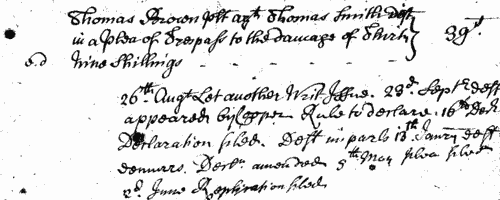 Thomas Brown plt agt Thomas Smith Deft
in a plea of Trespass to the damage of Thirty } 39s.
e.d nine shillings
26th. Augt Let another Writ Issue. 23d. Septr. deft
appeared by Copper Rule to declare. 16th Decr.
Declaration filed. Deft imparls 13th Janry deft
demurrs. Decln. amended 5th May plea filed
2d. June Replication filed